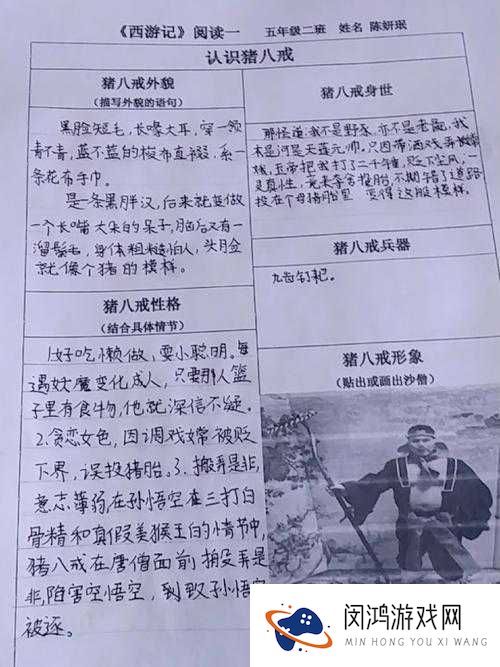 《西游记》阅读一 五年级二班 姓名 陈妍珉
认识猪八戒
猪八戒外貌
(描写外貌的语句)
黑脸短毛,长喙大耳,穿一领
青不青,蓝不蓝的梭布直裰,系一
条花布手巾。
是一条黑胖汉,后来就变做
一个长嘴大耳的呆子,脑后又有一
溜鬃毛,身体粗糙怕人,头脸
就像个猪的模样。
猪八戒性格
(结合具体情节)
1.好吃懒做,耍小聪明。每
遇妖魔变化成人,只要那人篮
子里有食物,他就深信不疑。
2.贪恋女色,因调戏嫦被贬
下界,误投猪胎。3.搬弄是非,
意志薄弱,在孙悟空在三打白
骨精和真假美猴王的情节中,
猪八戒在唐僧面前搬弄是
非,陷害空悟空,到致孙悟空
被逐。
猪八戒身世
那怪道:我不是野豕,亦不是老彘,我
本是河是天蓬元帅,只因带酒戏弄嫦
娥,玉帝把我打了二千锤,贬下尘凡,一
灵真性,竟来夺舍投胎,不期错了道路
投在个母猪胎里 变得这般模样。
猪八戒兵器
九齿钉耙。
猪八戒形象
(贴出或画出沙僧)
闵鸿游戏网
MIN HONG YOU XI WANG